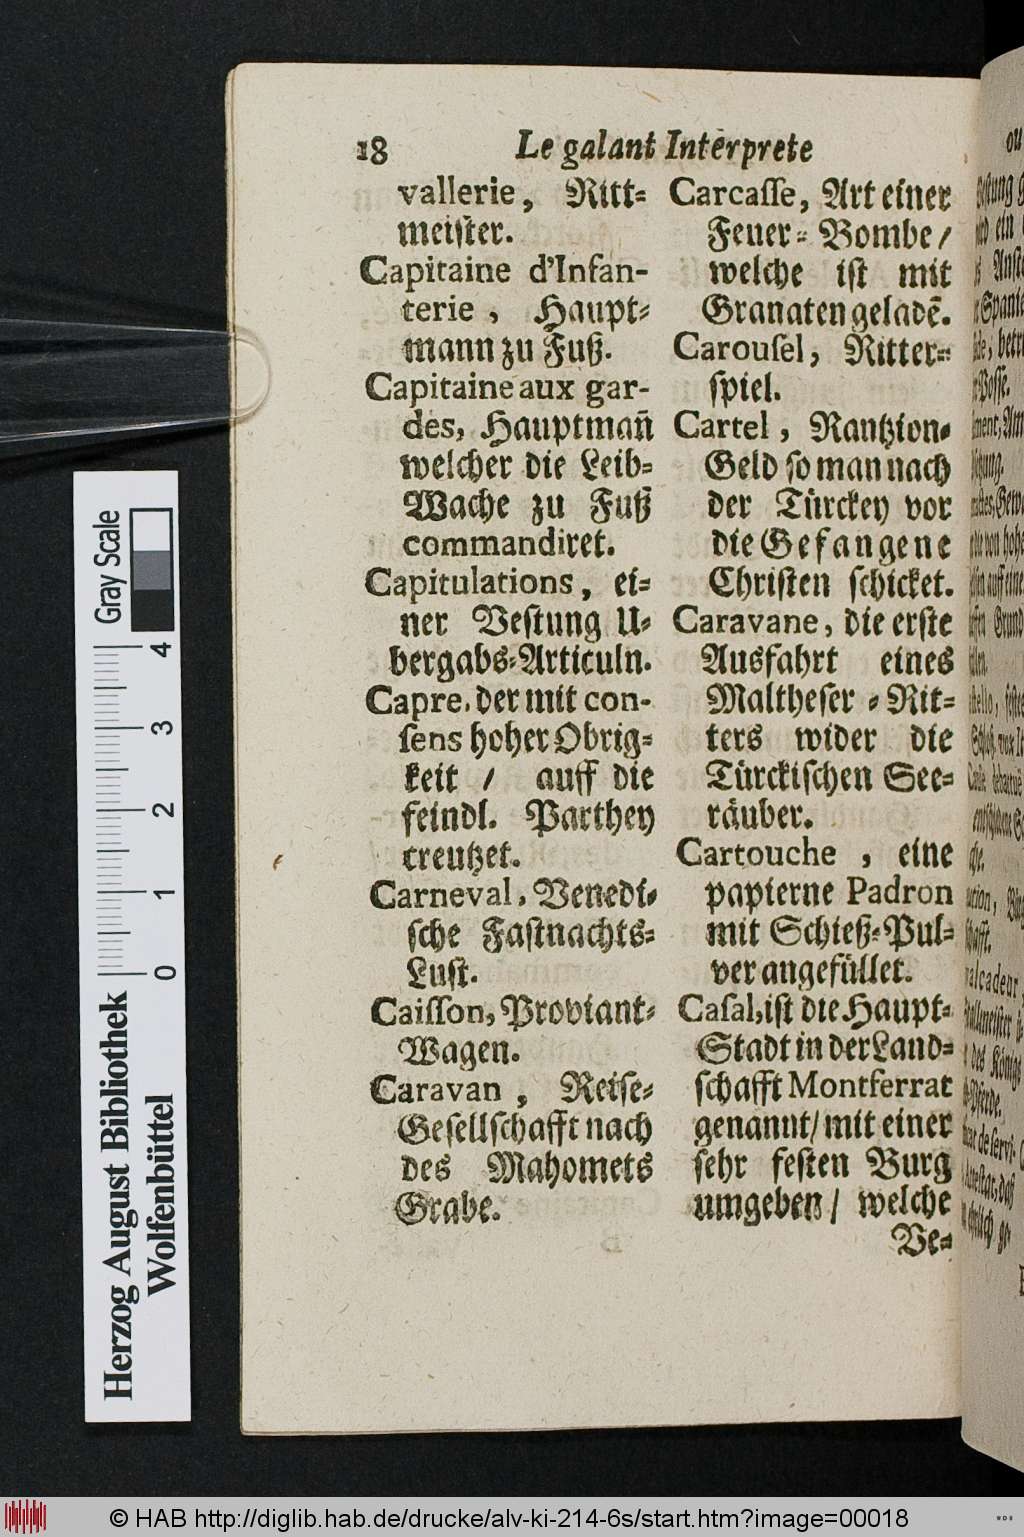 18 Le galant Interprete
vallerie, Ritt-
meister.
Capitaine d'Infan-
terie, Haupt-
mann zu Fuß.
Capitaine aux gar-
des, Hauptmañ
welcher die Leib-
Wache zu Fuß
commandiret.
Capitulations, ei-
ner Vestung U-
bergabs-Articuln.
Capre, der mit con-
sens hoher Obrig-
keit / auff die
feindl. Parthey
creutzet.
Carneval, Venedi-
sche Fastnachts-
Lust.
Caisson, Proviant-
Wagen.
Caravan, Reise-
Gesellschafft nach
des Mahomets
Grabe.
Carcasse, Art einer
Feuer-Bombe /
welche ist mit
Granaten geladē.
Carousel, Ritter-
spiel.
Cartel, Rantzion-
Geld so man nach
der Türckey vor
die Gefangene
Christen schicket.
Caravane, die erste
Ausfahrt eines
Maltheser-Rit-
ters wider die
Türckischen See-
räuber.
Cartouche, eine
papierne Padron
mit Schieß-Pul-
ver angefüllet.
Casal, ist die Haupt-
Stadt in der Land-
schafft Montferrat
genannt / mit einer
sehr festen Burg
umgeben / welche
Ve-
Gray Scale
4 3 2 1 0
Herzog August Bibliothek
Wolfenbüttel
© HAB http://diglib.hab.de/drucke/alv-ki-214-6s/start.htm?image=00018